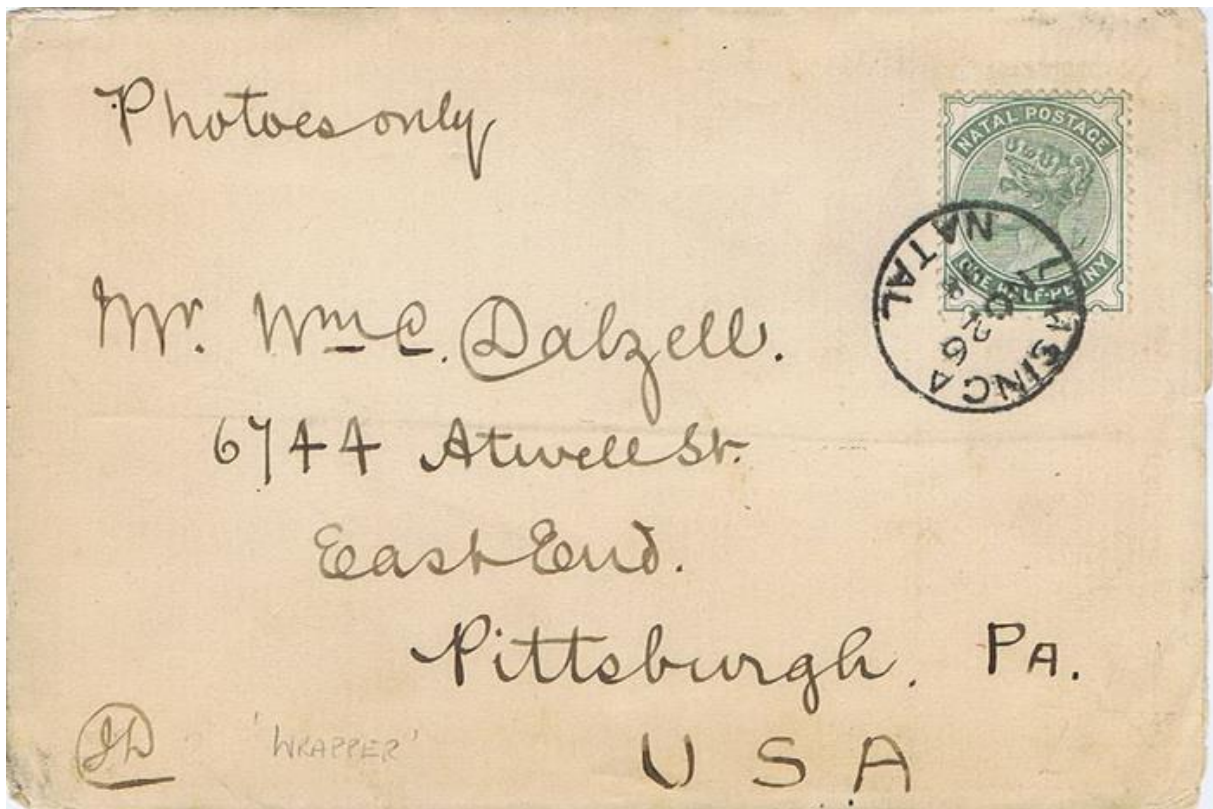 Photoes only
NATAL POSTAGE
ONE HALF-PENNY
NATAL
UMSINGA
26
Mr. Wm C. Dalzell.
6744 Atwell St.
East End.
Pittsburgh. PA.
USA
'WRAPPER'